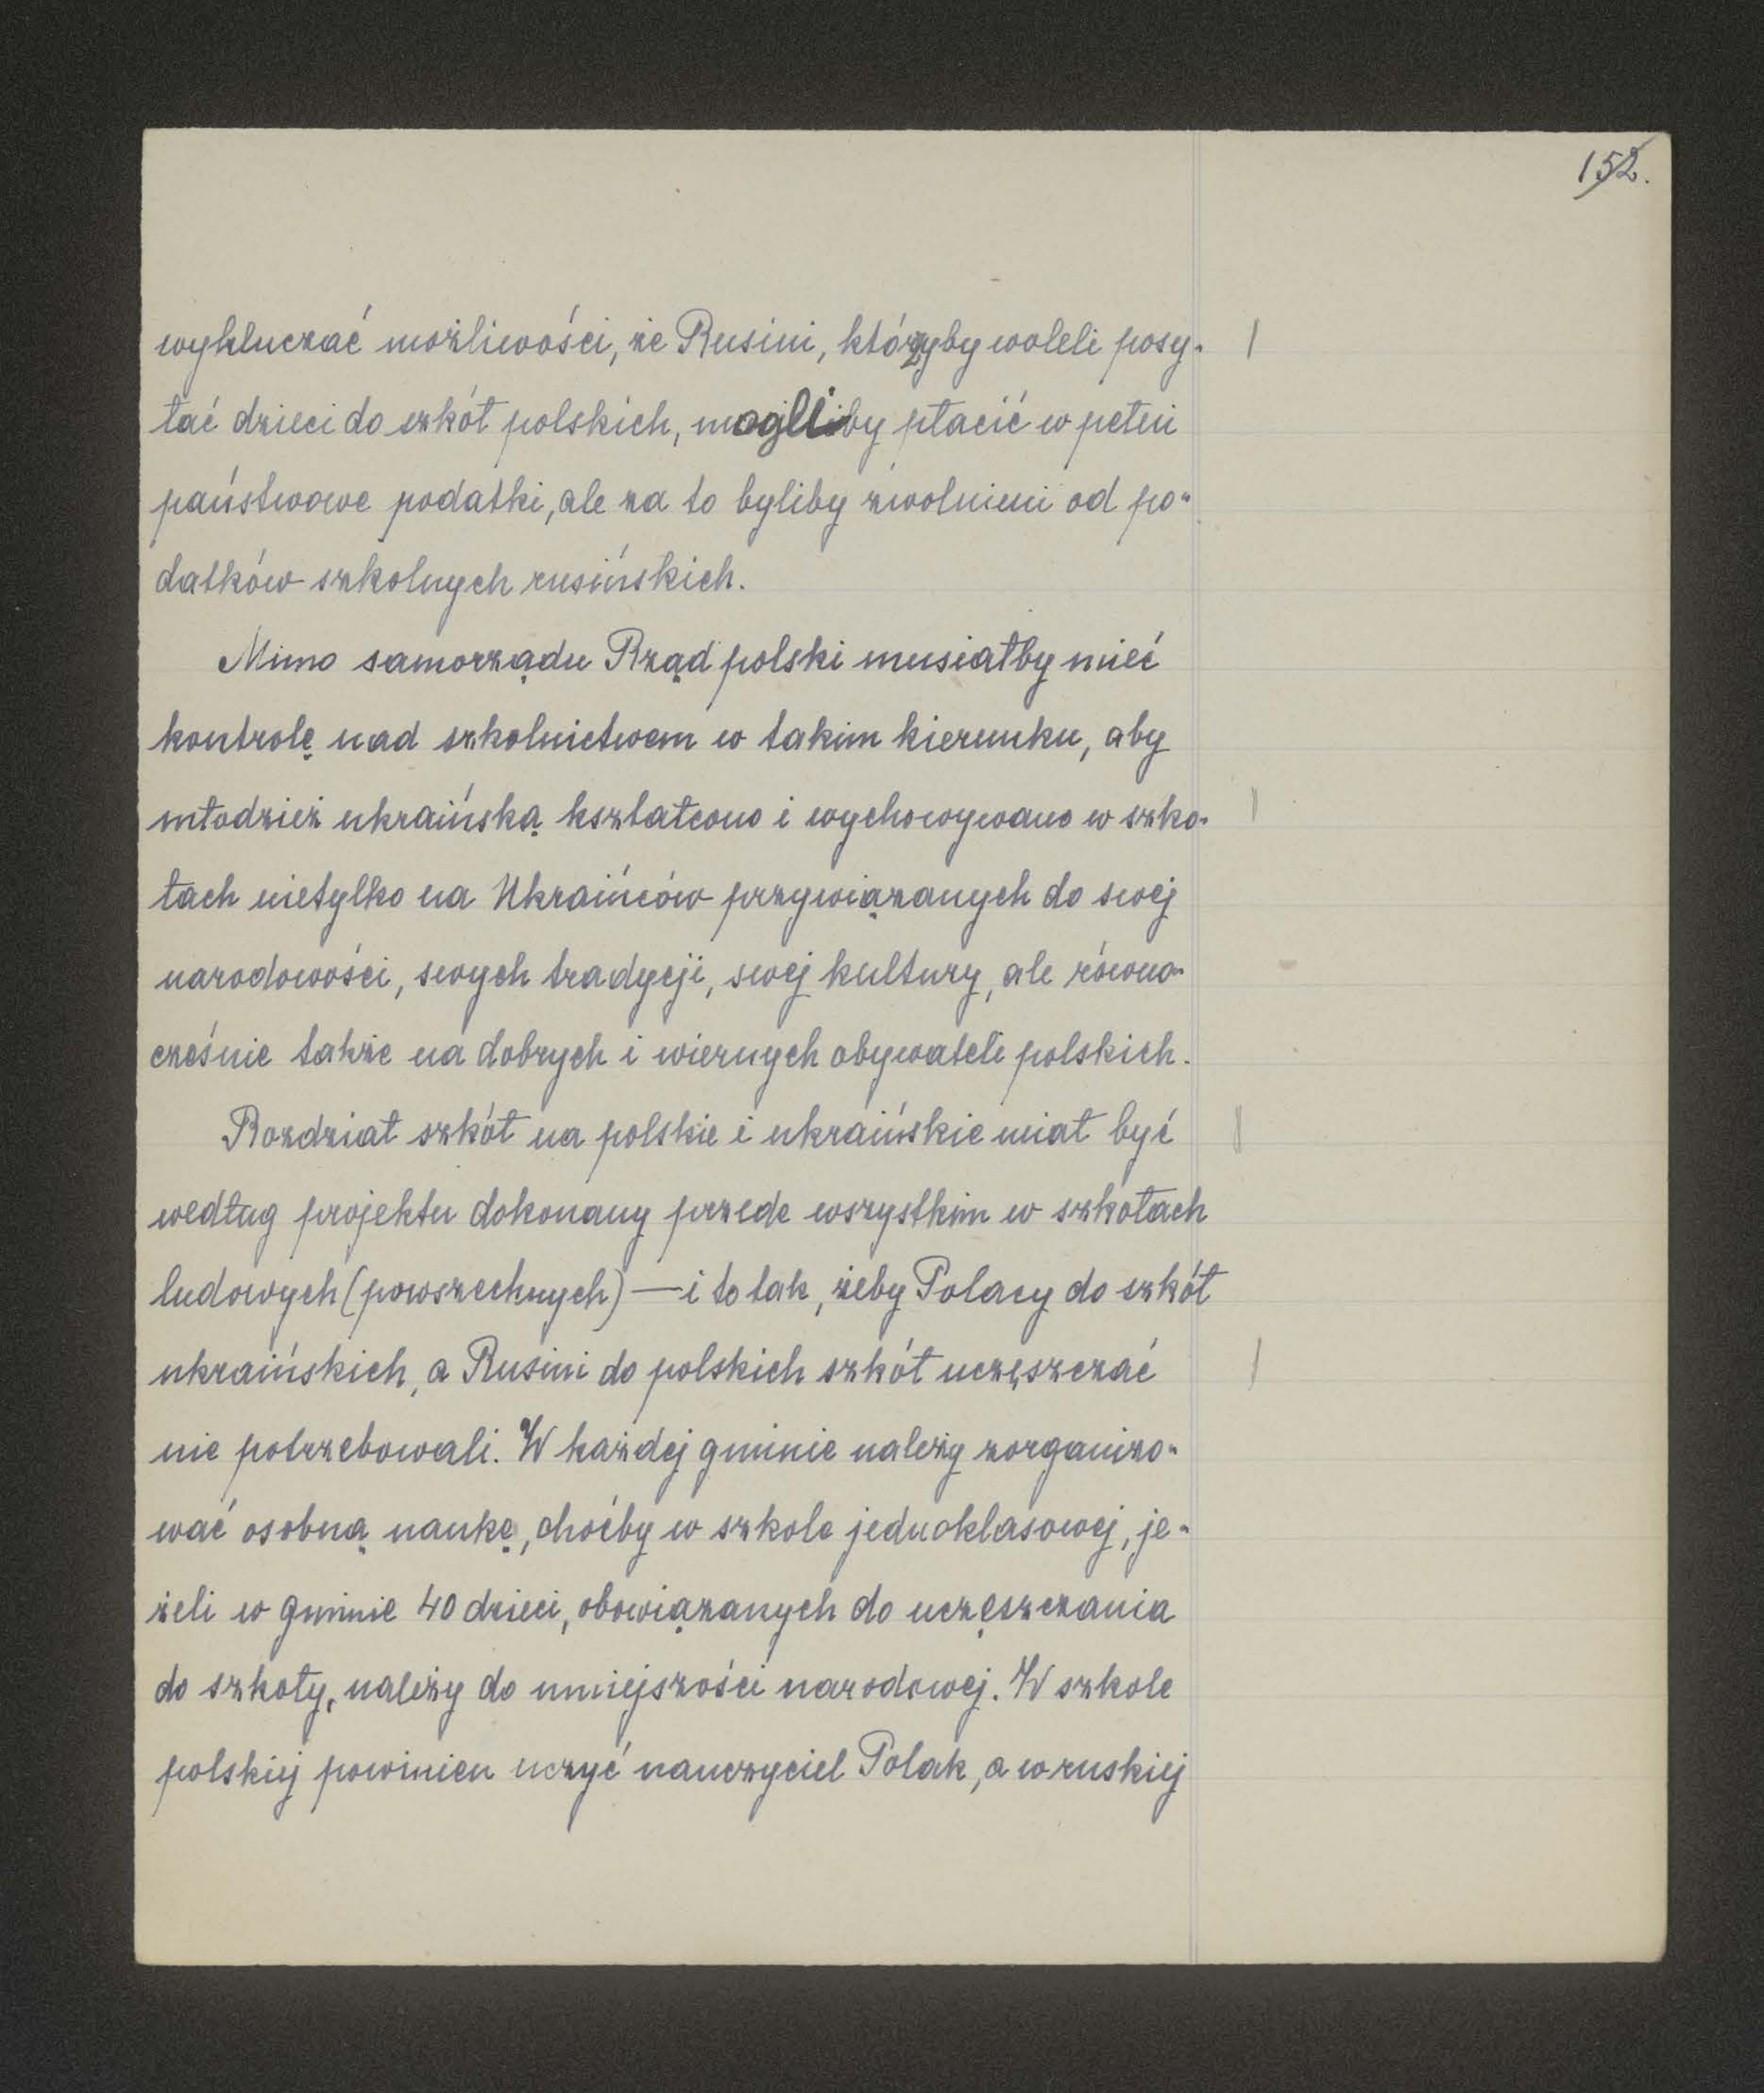 152.
wykluczać możliwości, że Rusini, którzyby woleli posy-
łać dzieci do szkół polskich, mogliby płacić w pełni
państwowe podatki, ale za to byliby zwolnieni od po-
datków szkolnych rusińskich.
Mimo samorządu Rząd polski musiałby mieć
kontrolę nad szkolnictwem w takim kierunku, aby
młodzież ukraińską kształcono i wychowywano w szko-
łach nietylko na Ukraińców przywiązanych do swej
narodowości, swych tradycji, swej kultury, ale równo-
cześnie także na dobrych i wiernych obywateli polskich.
Rozdział szkół na polskie i ukraińskie miał być
według projektu dokonany przede wszystkim w szkołach
ludowych (powszechnych) — i to tak, żeby Polacy do szkół
ukraińskich, a Rusini do polskich szkół uczęszczać
nie potrzebowali. W każdej gminie należy zorganizo-
wać osobną naukę, choćby w szkole jednoklasowej, je-
żeli w gminie 40 dzieci, obowiązanych do uczęszczania
do szkoły, należy do mniejszości narodowej. W szkole
polskiej powinien uczyć nauczyciel Polak, a w ruskiej